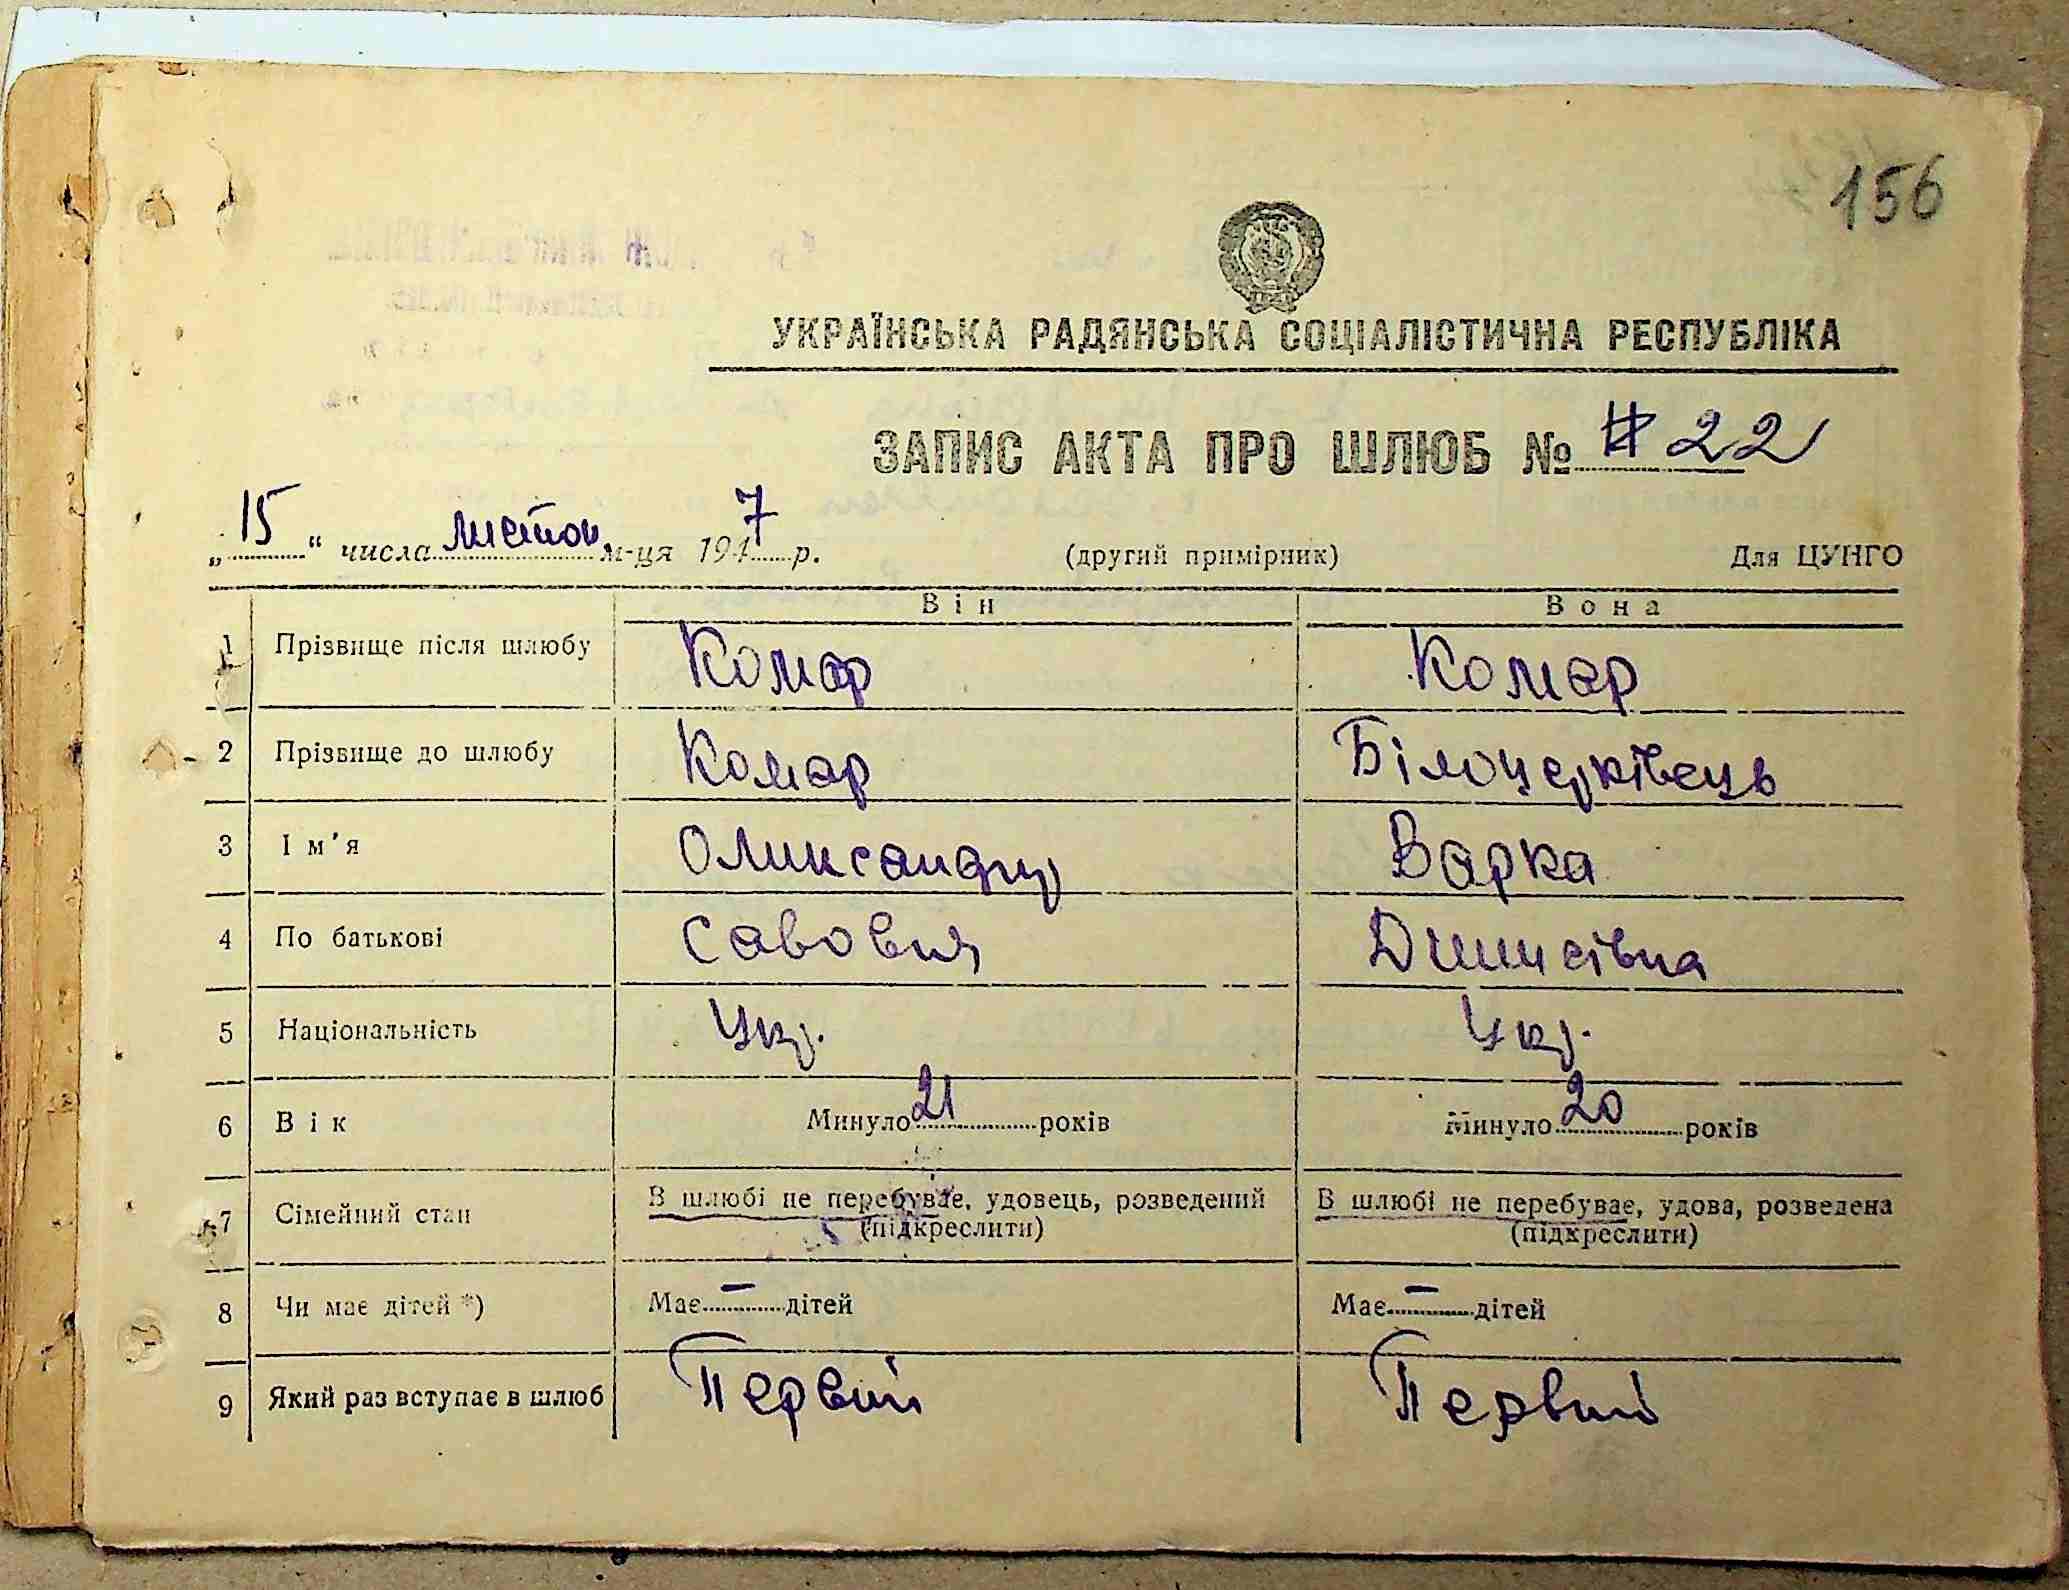 156
УКРАЇНСЬКА РАДЯНСЬКА СОЦІАЛІСТИЧНА РЕСПУБЛІКА
ЗАПИС АКТА ПРО ШЛЮБ № # 22
„15“ числа листоп. м-ця 1947 р. (другий примірник) Для ЦУНГО
Він Вона
1 Прізвище після шлюбу Комар Комар
2 Прізвище до шлюбу Комар Білоцерківець
3 Ім'я Оликсандр Варка
4 По батькові Савович Динисівна
5 Національність Укр. Укр.
6 Вік Минуло 21 років Минуло 20 років
7 Сімейний стан В шлюбі не перебуває, удовець, розведений В шлюбі не перебуває, удова, розведена
(підкреслити) (підкреслити)
8 Чи має дітей *) Має — дітей Має — дітей
9 Який раз вступає в шлюб Первий Первий